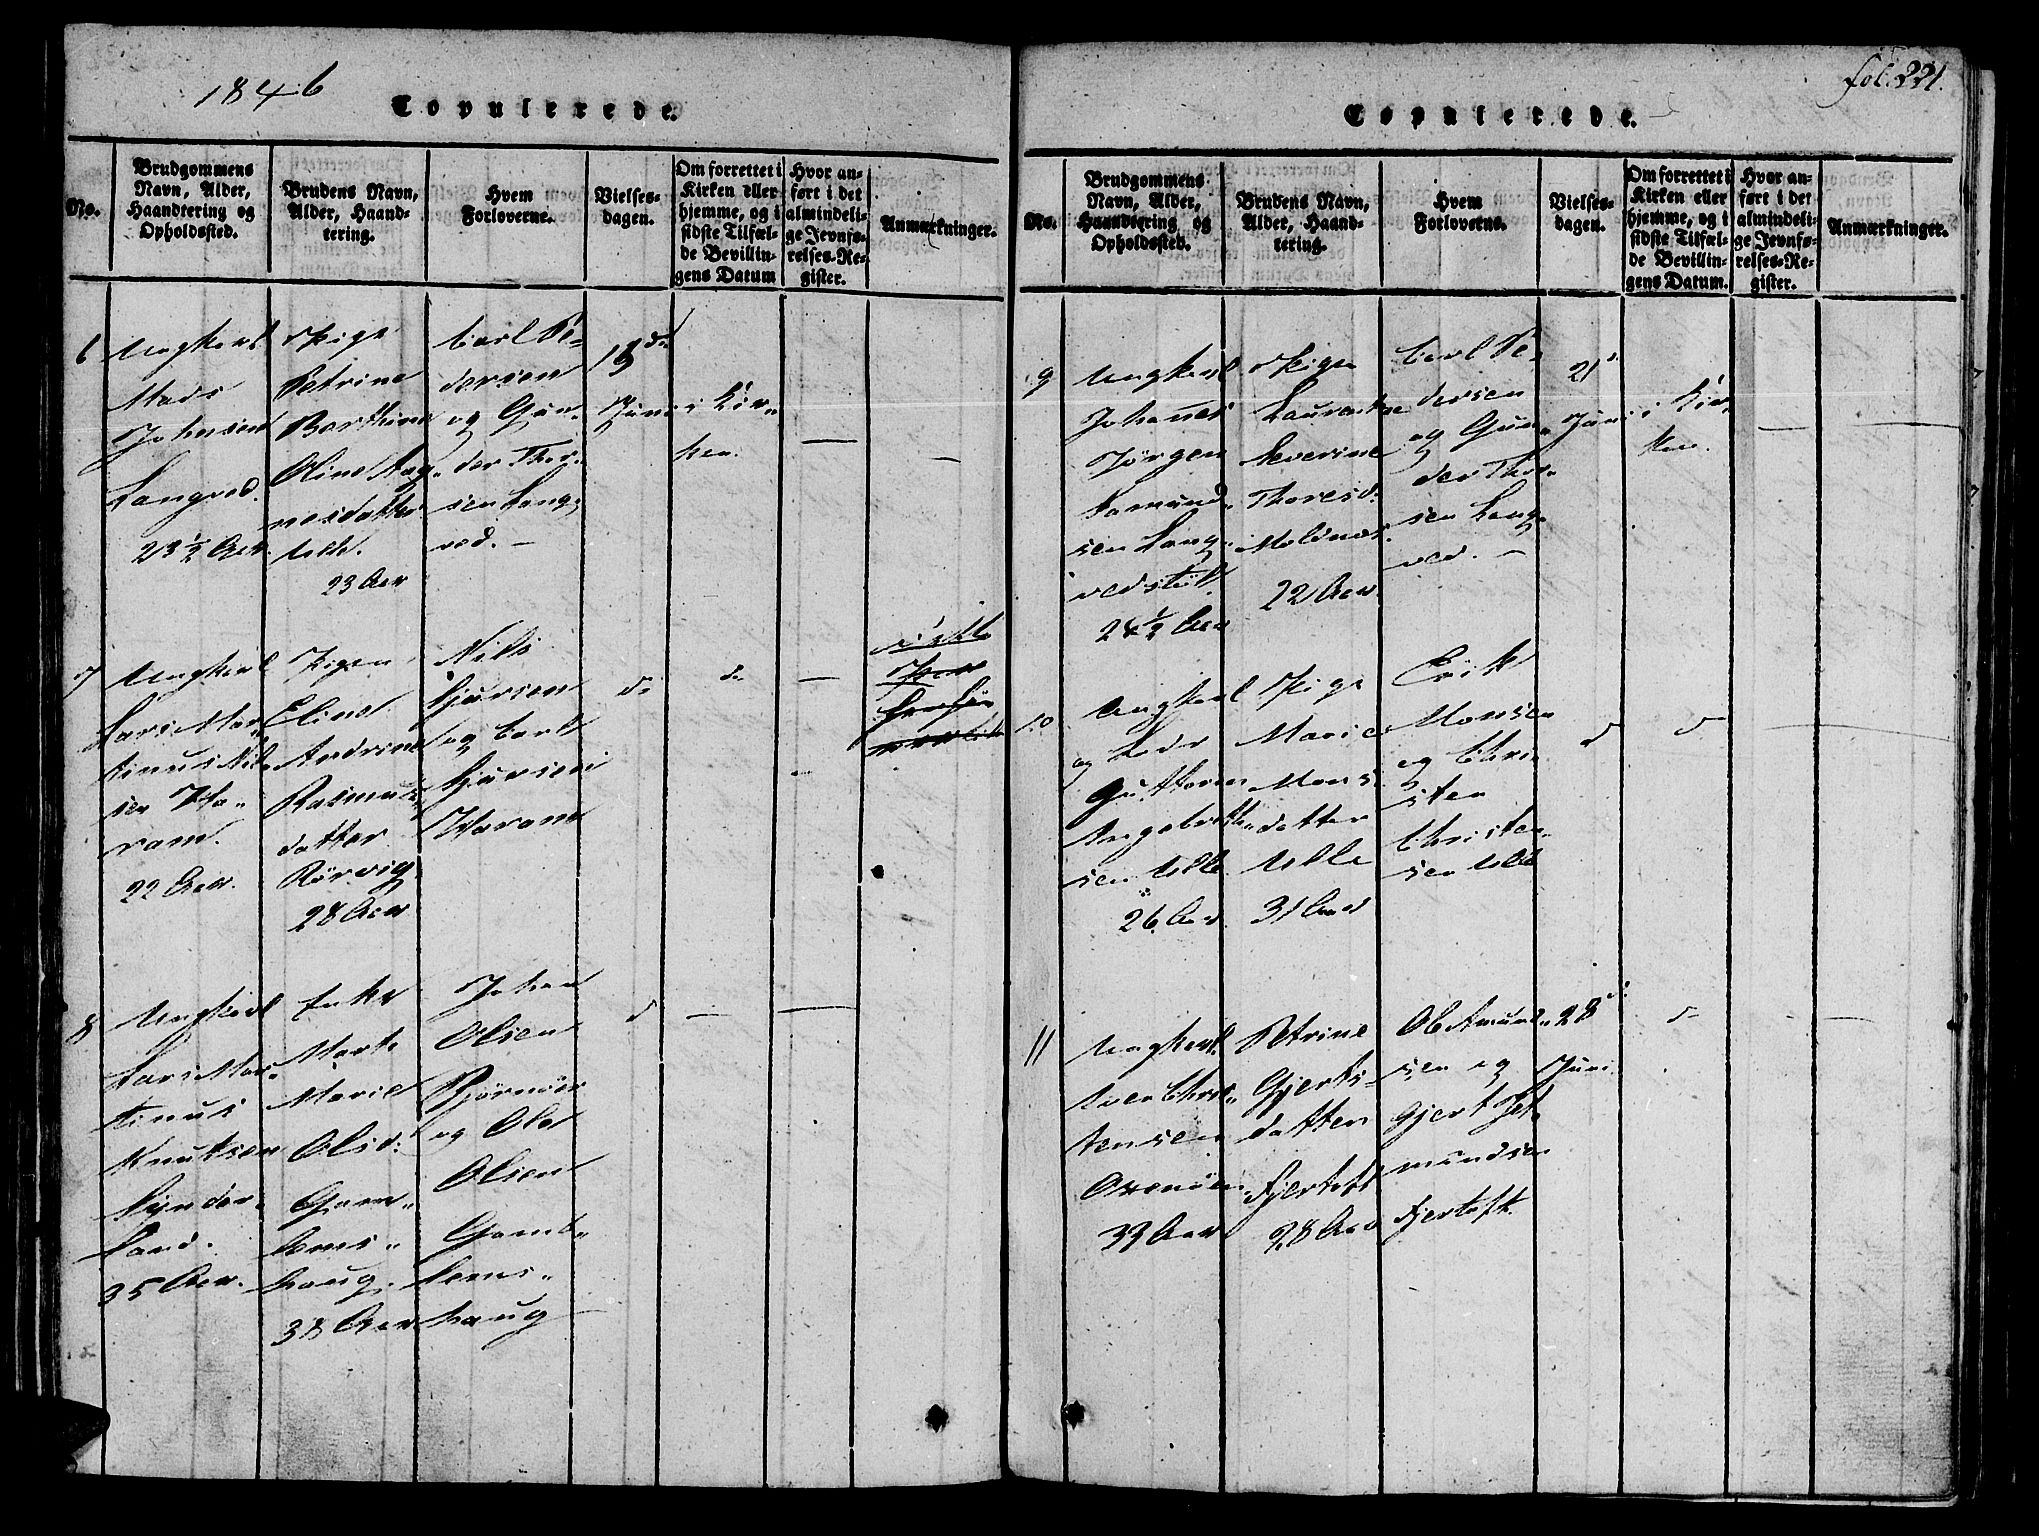 1846
Copulerede.
No.
Brudgommens
Navn, Alder,
Haandtering og
Opholdssted.
Brudens Navn,
Alder, Haand-
tering.
Hvem
Forloverne.
Vielses-
dagen.
Om forrettet i
Kirken eller
hjemme, og i
sidste Tilfæl-
de Bevillin-
gens Datum
Hvor an-
ført i det
almindeli-
ge Jevnfø-
relses-Re-
gister.
Anmærkninger.
6
Ungkarl
Mads
Johnsen
Langved.
23 1/2 Aar
Pige
Petrine
Berthine
Oline Aag-
nesdatter
Ulle.
23 Aar
Carl Pe-
dersen
og Gun-
der Thor-
sen Lang-
ved. -
Juni
i Kir-
ken.
7
Ungkarl
Lars Mar-
tinus Nil-
sen Ha-
ram.
22 Aar.
Pigen
Eline
Andrine
Rasmus-
datter
Rørvig
28 Aar
Nils
Sjursen
og Carl
Sjursen
Haram
d:
d:
8
Ungkarl
Lars Mar-
tinus
Knutsen
Synder-
land.
35 Aar.
Enke
Marte
Marie
Olsd:
Gam-
lems-
haug.
38 Aar
Johan
Olsen
Bjørnøen
og Ole
Olsen
Gam-
lems-
haug
d
fol. 221.
Copulerede.
No.
Brudgommens
Navn, Alder,
Haandtering og
Opholdssted.
Brudens Navn,
Alder, Haand-
tering.
Hvem
Forloverne.
Vielses-
dagen.
Om forrettet i
Kirken eller
hjemme, og i
sidste Tilfæl-
de Bevillin-
gens Datum.
Hvor an-
ført i det
almindeli-
ge Jevnfø-
relses-Re-
gister.
Anmærkninger.
9
Ungkarl
Johanes
Jørgen
Samund-
sen Lang-
vedstøl.
24 1/2 Aar
Pigen
Laurentse
Severine
Thoresd:
Molanes.
22 Aar.
Carl Pe-
dersen
og Gun-
der Thor-
sen Lang-
ved. -
21
Juni
i Kir-
ken.
10
Ungkarl
og
Guttorm
Ingebrigt-
sen Ulle
26 Aar.
Pige
Marie
Mons-
datter
Ulle
31 Aar
Erik
Monsen
og Chri-
sten
Christen-
sen Ulle
d
d
11
Ungkarl
Iver Chris-
tensen
Oxenøen
33 Aar
Petrine
Gjerts-
datter
Fjertoft
28 Aar
Ole Amund-
sen og
Gjert Jet-
mundsen
Fjertoft.
28
Juni
d: